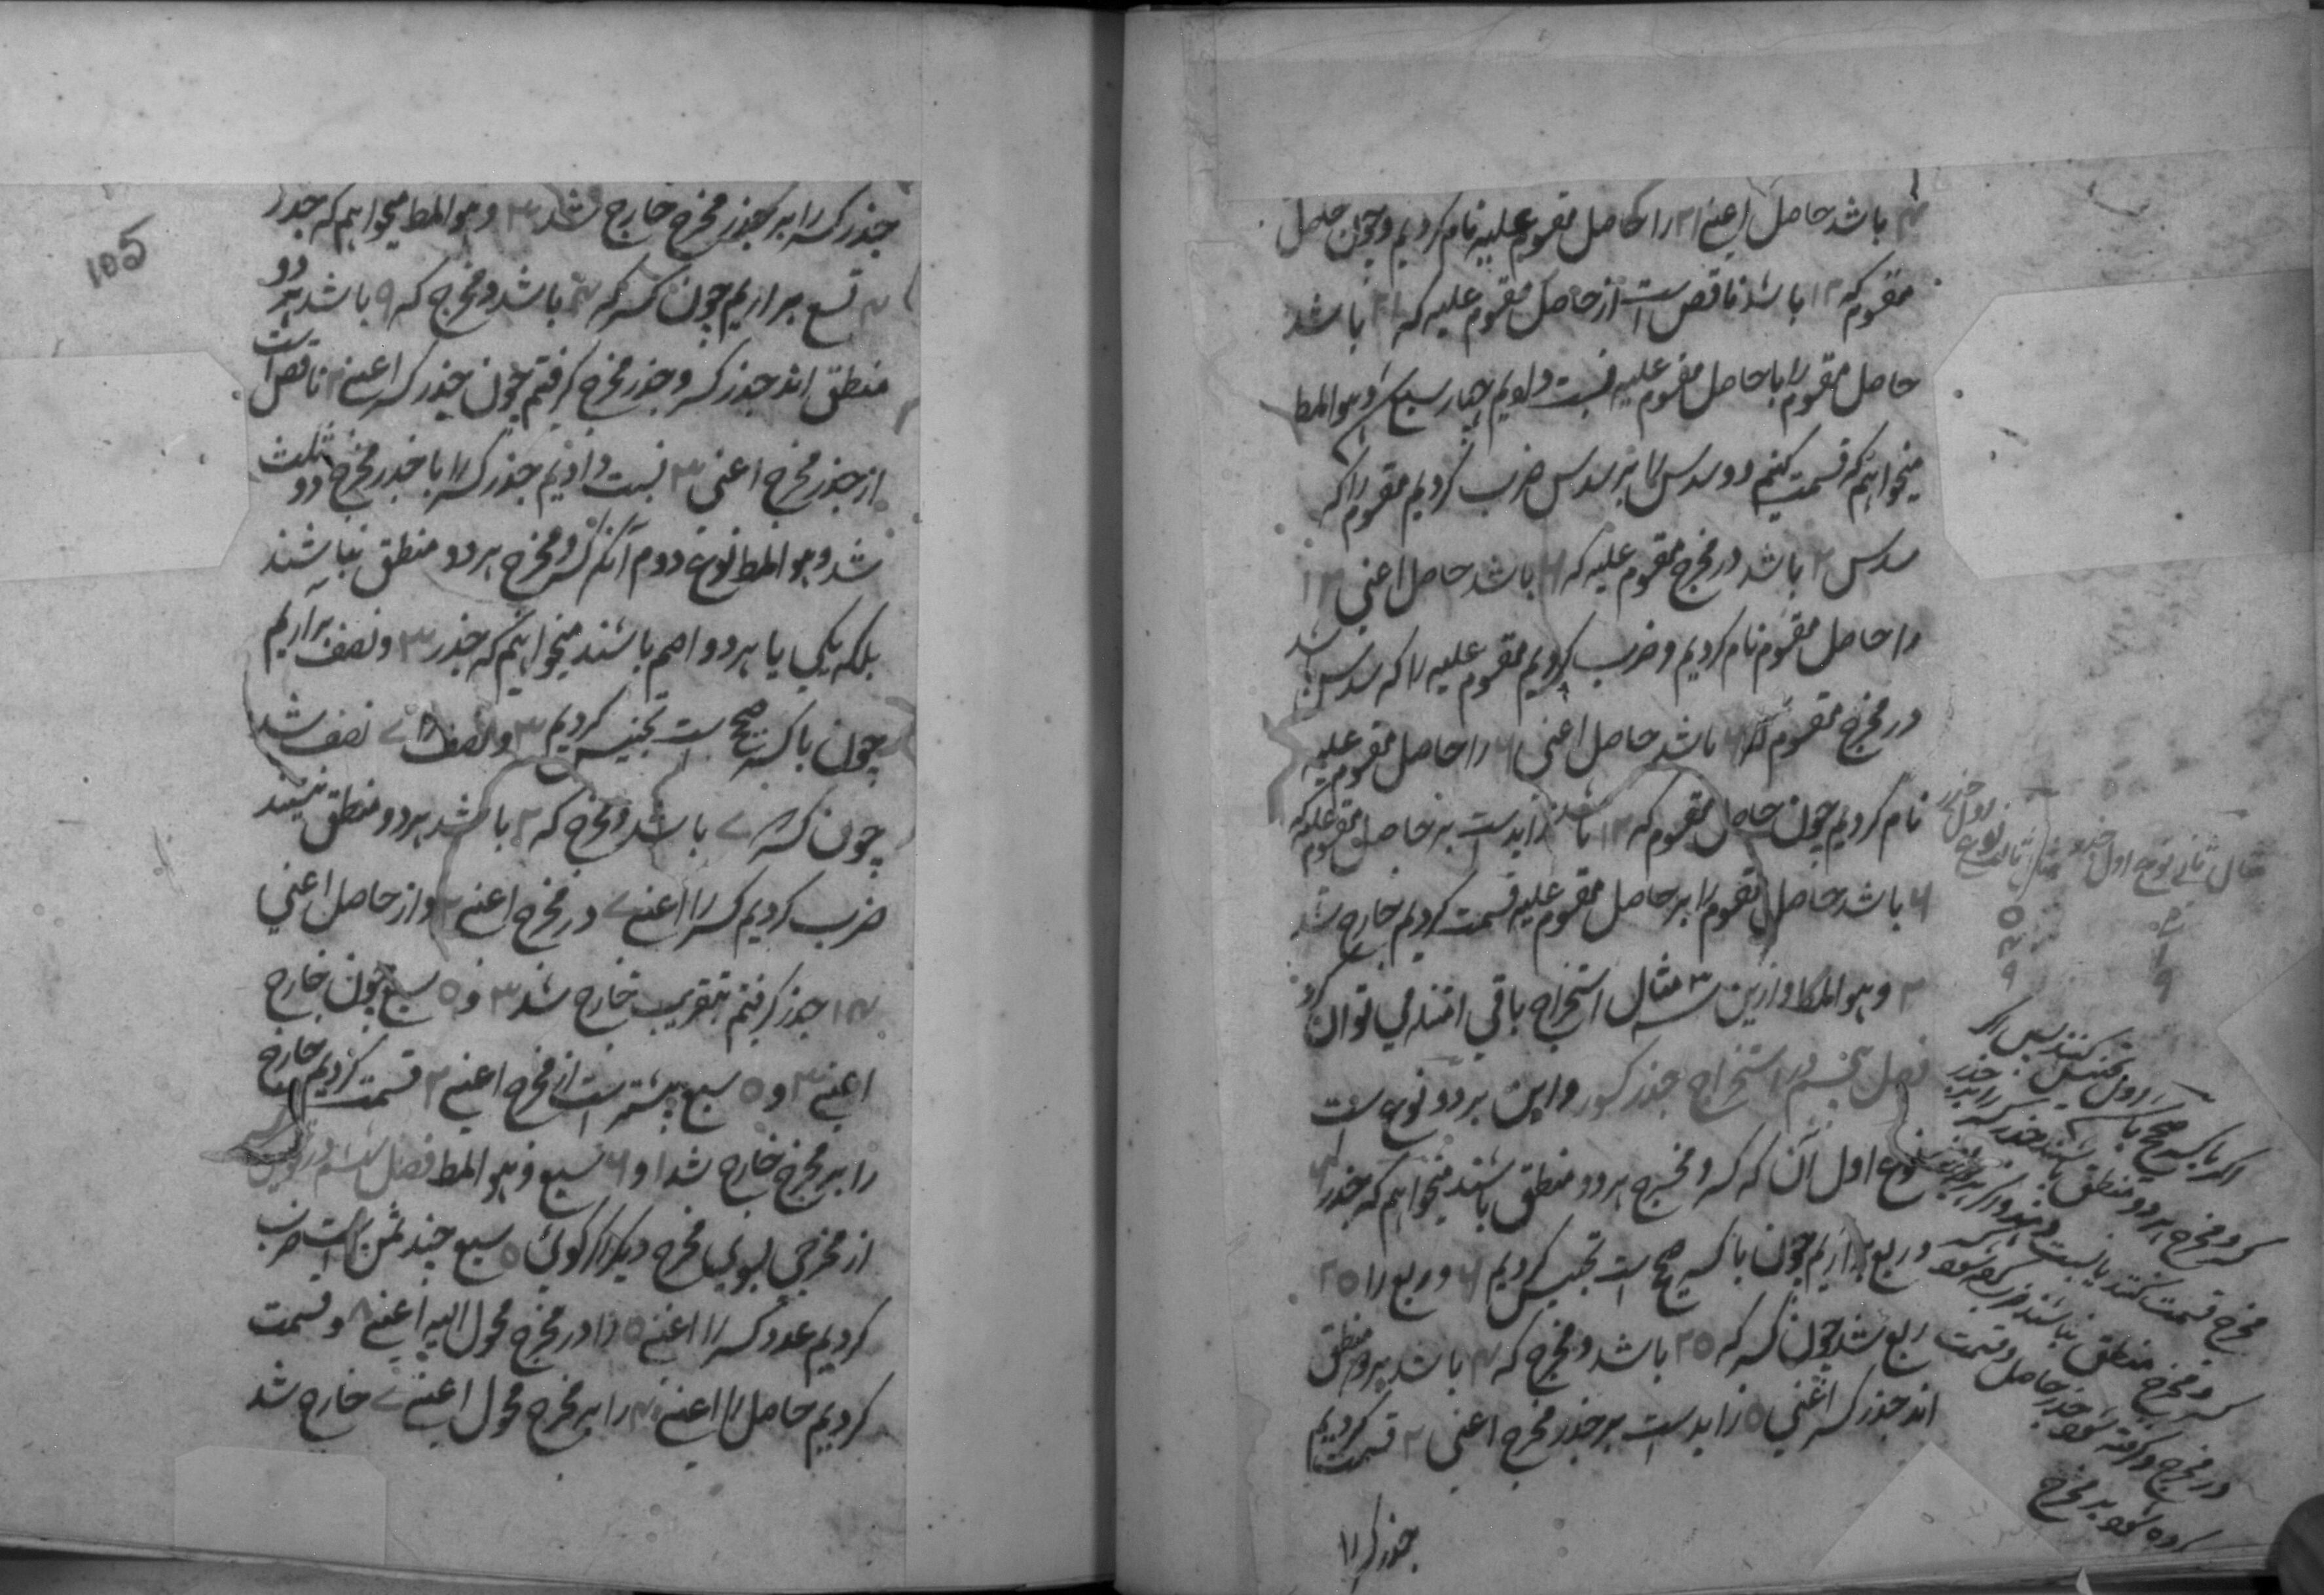 باشد حاصل اعنی ۲۱ را حاصل مقسوم علیه نام کردیم و چون حاصل
مقسوم که ۱۲ باشد ناقص است از حاصل مقسوم علیه که ۲۱ باشد
حاصل مقسوم را با حاصل مقسوم علیه نسبت دادیم چهار سبع شد و هو المط
میخواهیم که قسمت کنیم دو سدس را بر سدس ضرب کردیم مقسوم را که
سدس ۲ باشد در مخرج مقسوم علیه که ۶ باشد حاصل اعنی ۱۲
را حاصل مقسوم نام کردیم و ضرب کردیم مقسوم علیه را که سدس باشد
در مخرج مقسوم که ۶ باشد حاصل اعنی ۶ را حاصل مقسوم علیه
نام کردیم چون حاصل مقسوم که ۱۲ باشد زاید است بر حاصل مقسوم علیه که
۶ باشد حاصل مقسوم را بر حاصل مقسوم علیه قسمت کردیم خارج شد
۲ و هو المط و ازین سه مثال استخراج باقی امثله می توان کرد
فصل پنجم در استخراج جذر کسور و این بر دو نوع است
نوع اول آن که کسر و مخرج هر دو منطق باشند میخواهیم که جذر ۶
و ربع برآریم چون با کسر صحیح است تجنیس کردیم ۶ و ربع را ۲۵
ربع شد چون کسر که ۲۵ باشد و مخرج که ۴ باشد هر دو منطق
اند جذر کسر اعنی ۵ زاید است بر جذر مخرج اعنی ۲ قسمت کردیم
جذر کسر را
اگر با کسر صحیح باشد اول تجنیس کنند پس اگر
کسر و مخرج هر دو منطق باشند جذر کسر را بر جذر
مخرج قسمت کنند یا نسبت دهند و اگر
کسر و مخرج منطق نباشند ضرب کرده شود کسر
در مخرج و گرفته شود جذر حاصل و قسمت
کرده شود بر مخرج
105
جذر کسر را بر جذر مخرج خارج شد ۲ و هو المط میخواهیم که جذر
۴ تسع برآریم چون کسر که ۴ باشد و مخرج که ۹ باشد هر دو
منطق اند جذر کسر و جذر مخرج گرفتیم چون جذر کسر اعنی ۲ ناقص است
از جذر مخرج اعنی ۳ نسبت دادیم جذر کسر را با جذر مخرج دو ثلث
شد و هو المط نوع دوم آنکه کسر و مخرج هر دو منطق نباشند
بلکه یکی یا هر دو اصم باشند میخواهیم که جذر ۳ و نصف برآریم
چون با کسر صحیح است تجنیس کردیم ۳ و نصف را ۷ نصف شد
چون کسر که ۷ باشد و مخرج که ۲ باشد هر دو منطق نیستند
ضرب کردیم کسر را اعنی ۷ در مخرج اعنی ۲ و از حاصل اعنی
۱۴ جذر گرفتیم بتقریب خارج شد ۳ و ۵ سبع چون خارج
اعنی ۳ و ۵ سبع بیشتر است از مخرج اعنی ۲ قسمت کردیم خارج
را بر مخرج خارج شد ۱ و ۶ سبع و هو المط فصل ششم در تحویل
از مخرجی بسوی مخرج دیگر اگر گوئی ۵ سبع چند ثمن است ضرب
کردیم عدد کسر را اعنی ۵ را در مخرج محول الیه اعنی ۸ و قسمت
کردیم حاصل را اعنی ۴۰ را بر مخرج محول اعنی ۷ خارج شد